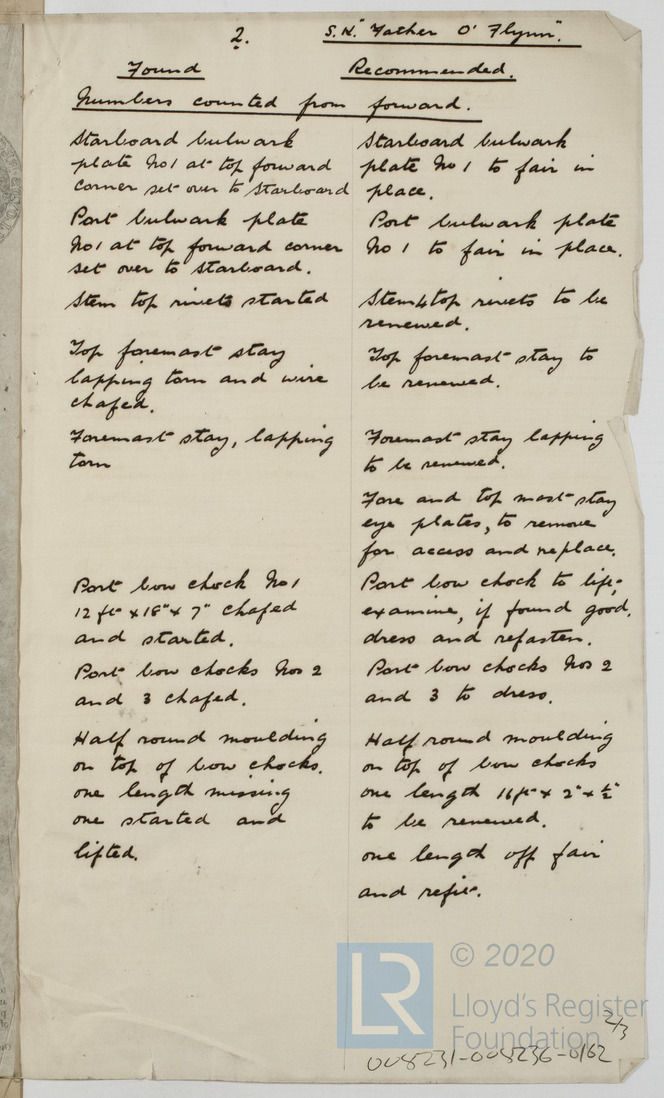 2. S.K. "Father O'Flynn".
Found Recommended.
Numbers counted from forward.
Starboard bulwark
plate No 1 at top forward
corner set over to starboard
Starboard bulwark
plate No 1 to fair in
place.
Port bulwark plate
No 1 at top forward corner
set over to starboard.
Port bulwark plate
No 1 to fair in place.
Stem top rivets started
Stem 4 top rivets to be
renewed.
Top foremast stay
lapping torn and wire
chafed.
Top foremast stay to
be renewed.
Foremast stay, lapping
torn
Foremast stay lapping
to be renewed.
Fore and top mast stay
eye plates, to remove
for access and replace.
Port bow chock No 1
12 ft x 18" x 7" chafed
and started.
Port bow chock to lift,
examine, if found good,
dress and refasten.
Port bow chocks Nos 2
and 3 chafed.
Port bow chocks Nos 2
and 3 to dress.
Half round moulding
on top of bow chocks.
one length missing
one started and
lifted.
Half round moulding
on top of bow chocks
one length 16 ft x 2" x ½"
to be renewed.
one length off fair
and refit.
LR
© 2020
Lloyd's Register
Foundation
2/3
008231-008236-0162